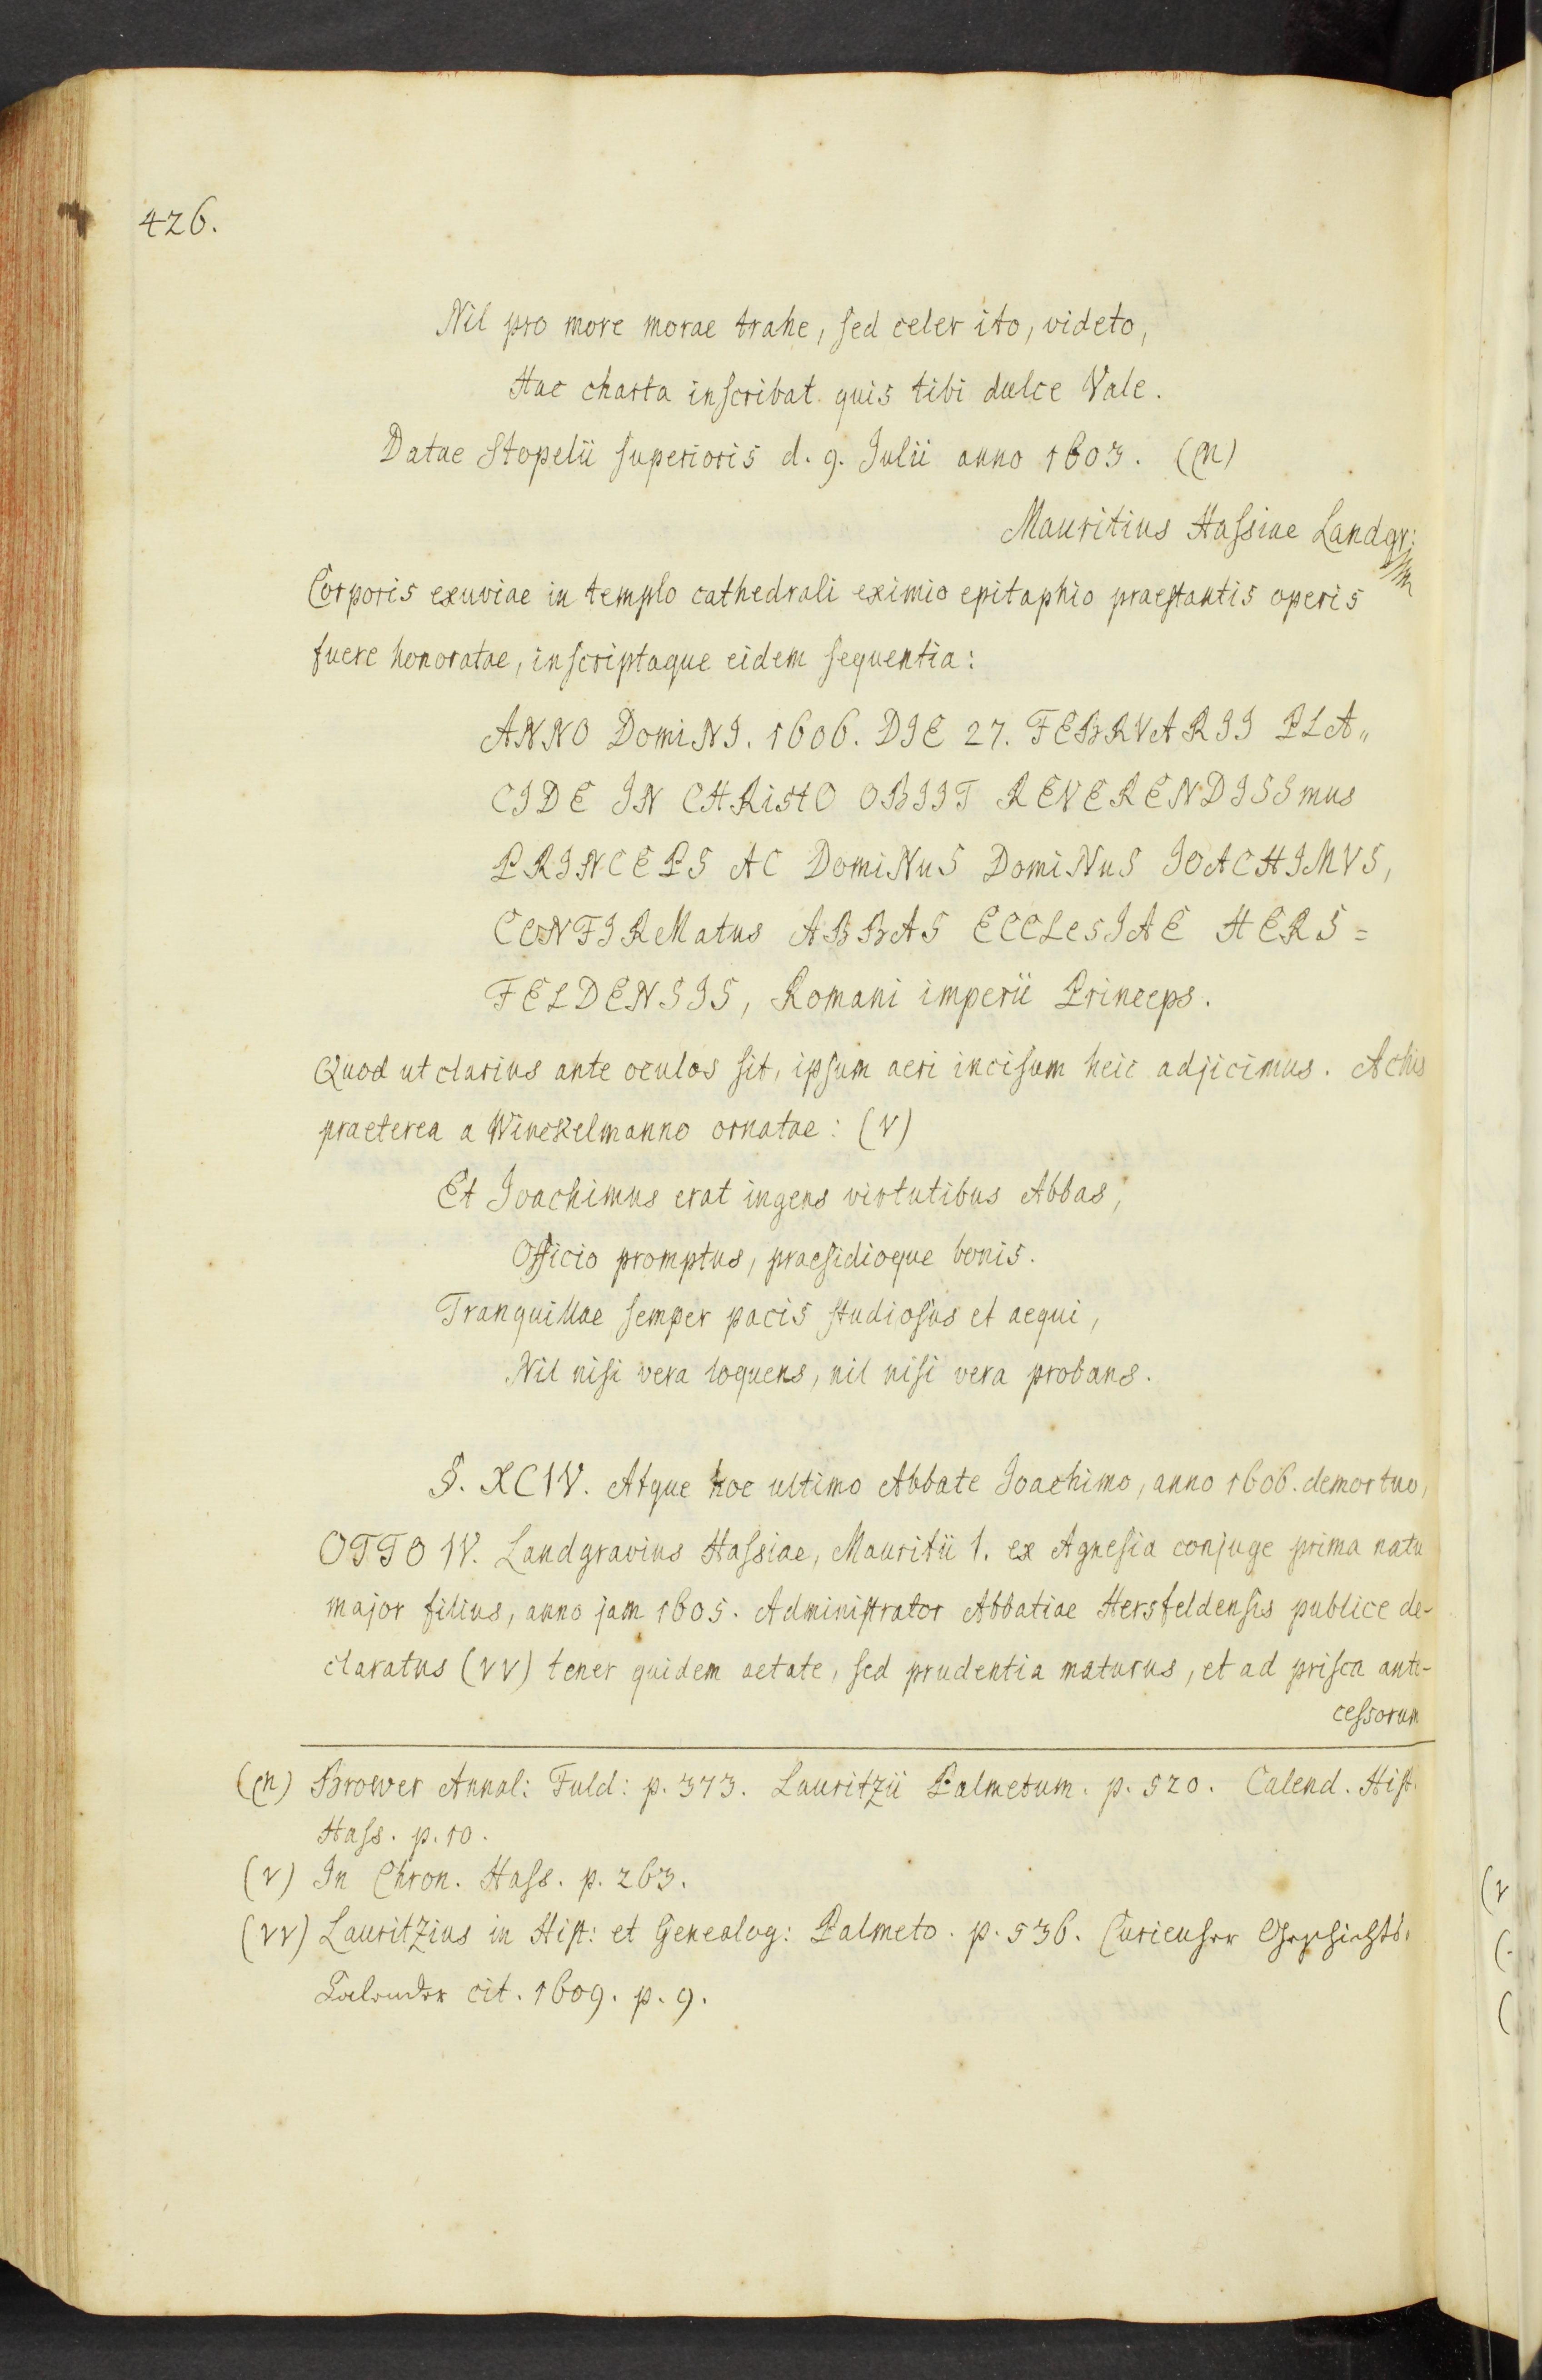 426.
Nil pro more morae trahe, sed celer ito, videto,
Hac charta inscribat quis tibi dulce Vale.
Datae Stopelii superioris d. 9. Julii anno 1603. (n)
Mauritius Hassiae Landgr:
Corporis exuviae in templo cathedrali eximio epitaphio praestantis operis
fuere honoratae, inscriptaque eidem sequentia:
ANNO DomiNI. 1606. DIE 27. FEBRVARII PLA„
CIDE IN CHRistO OBIIT REVERENDISSmus
PRINCEPS AC DomiNuS DomiNuS IOACHIMVS,
CONFIRMatus ABBAS ECCLesIAE HERS=
FELDENSIS, Romani imperii Princeps.
Quod ut clarius ante oculos sit, ipsum aeri incisum heic adjicimus. Achis
praeterea a Winckelmanno ornatae: (v)
Et Joachimus erat ingens virtutibus Abbas,
Officio promptus, praesidioque bonis.
Tranquillae semper pacis studiosus et aequi,
Nil nisi vera loquens, nil nisi vera probans.
§. XCIV. Atque hoc ultimo Abbate Joachimo, anno 1606. demortuo,
OTTO IV. Landgravius Hassiae, Mauritii I. ex Agnesia conjuge prima natu
major filius, anno jam 1605. Administrator Abbatiae Hersfeldensis publice de-
claratus (vv) tener quidem aetate, sed prudentia maturus, et ad prisca ante-
cessorum
(n) Brower Annal: Fuld: p. 373. Lauritzii Palmetum. p. 520. Calend. Hist.
Hass. p. 10.
(v) In Chron. Hass. p. 263.
(vv) Lauritzius in Hist: et Genealog: Palmeto. p. 536. Curieuser Geschichts-
Calender cit. 1609. p. 9.